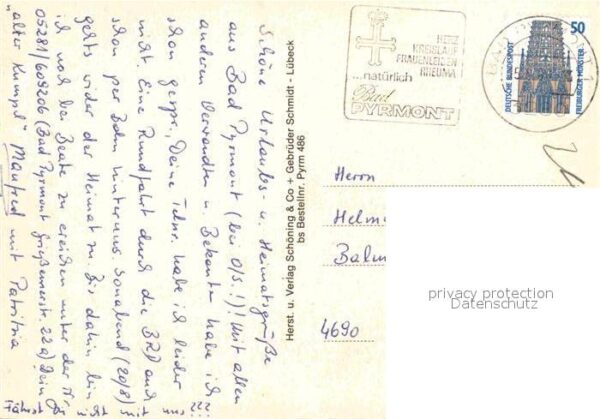 Schöne Urlaubs- u. Heimatgrüße
aus Bad Pyrmont (bei O/S.!)! Mit allen
anderen Verwandten u. Bekannten habe ich
schon gespr., Deine Telnr. habe ich leider
nicht. Eine Rundfahrt durch die BRD auch
schon per Bahn hinter uns. Sonabend (20/8)
gehts wider der Heimat zu. Bis dahin bin
ich noch bei Beate zu ereichen unter der Nr.
05281/609206 (Bad Pyrmont Grießemerstr. 22a) Dein
"alter Kumpel" Manfred mit Patritia
Fährst Du nicht mit uns ???
Herst. u. Verlag Schöning & Co + Gebrüder Schmidt - Lübeck
bs Bestellnr. Pyrm 486
HERZ
KREISLAUF
FRAUENLEIDEN
RHEUMA
...natürlich
Bad
PYRMONT
50
DEUTSCHE BUNDESPOST
FREIBURGER MÜNSTER
Herrn
Helm
4690
privacy protection
Datenschutz